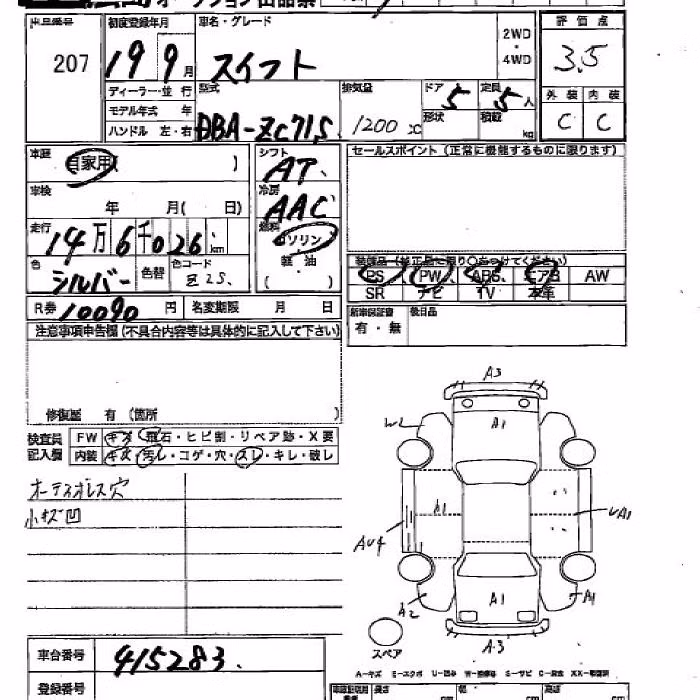 オークション出品票
出品番号 初度登録年月 車名・グレード 2WD・4WD 評価点
207 19 9月 スイフト 3.5
ディーラー・並行 型式 排気量 ドア 5 定員 5人 外装 内装
モデル年式 年 形状 積載 kg C C
ハンドル 左・右 DBA-ZC71S 1200 cc
車歴 自家用( ) シフト AT セールスポイント (正常に機能するものに限ります)
車検 年 月( 日) 冷房 AAC
走行 14万6千026 km 燃料 ガソリン
色 シルバー 色替 色コード Z2S. 軽油 ( )
PS PW ABS エアB AW
SR ナビ TV 本革
R券 10090 円 名変期限 月 日 新車保証書 後日品
有・無
注意事項申告欄 (不具合内容等は具体的に記入して下さい)
修復歴 有 (箇所 )
検査員 FW キズ・飛石・ヒビ割・リペア跡・X要
記入欄 内装 キズ・汚レ・コゲ・穴・スレ・キレ・破レ
オーディオレス穴
小キズ凹
A3
W2 A1
A1 UA1
AU4
A2 A1 A1
スペア A3
車台番号 415283
登録番号
A-キズ E-エクボ U-凹み W-補修跡 S-サビ C-腐食 XX-交換済
長さ 幅 高さ